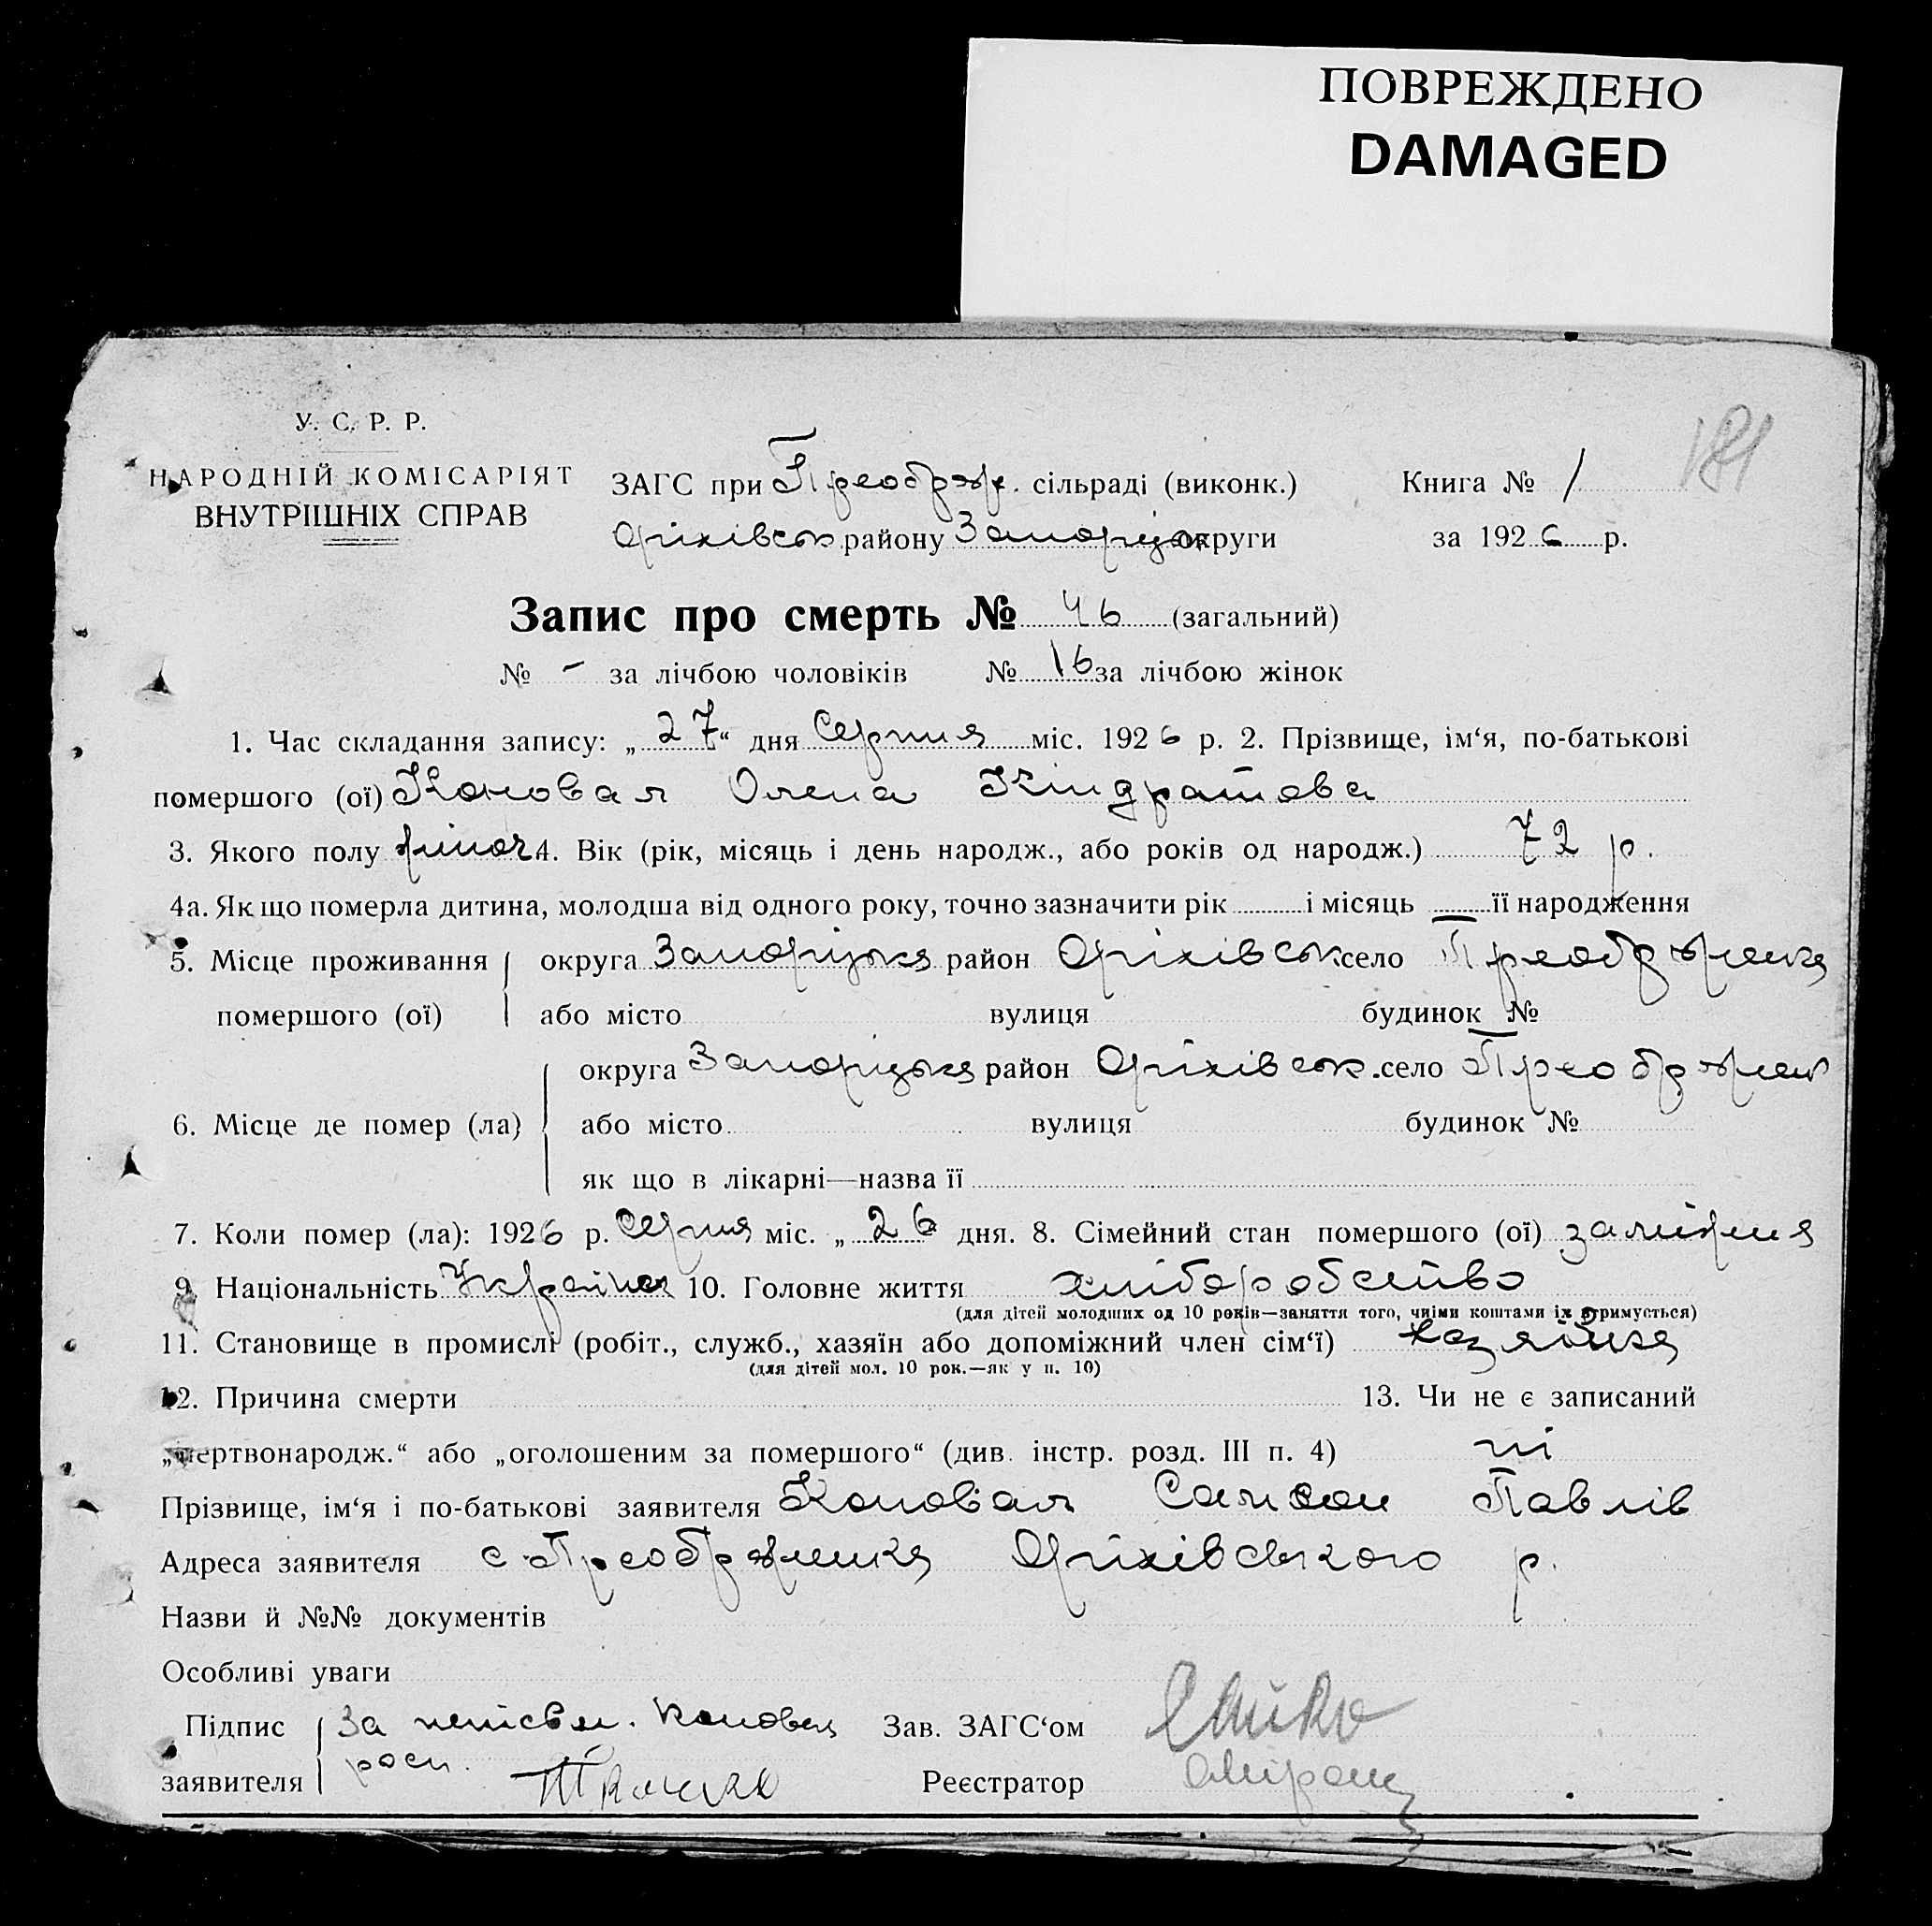 ПОВРЕЖДЕНО
DAMAGED
181
У. С. Р. Р.
НАРОДНІЙ КОМІСАРІЯТ
ВНУТРІШНІХ СПРАВ
ЗАГС при Преображ. сільраді (виконк.)
Оріхівськ району Запоріцьк округи
Книга № 1
за 1926 р.
Запис про смерть № 46 (загальний)
№ - за лічбою чоловіків № 16 за лічбою жінок
1. Час складання запису: „27“ дня Серпня міс. 1926 р. 2. Прізвище, ім‘я, по-батькові
помершого (ої) Коновал Олена Кіндратова
3. Якого полу жіноч 4. Вік (рік, місяць і день народж., або років од народж.) 72 р.
4а. Як що померла дитина, молодша від одного року, точно зазначити рік і місяць — її народження
5. Місце проживання помершого (ої) округа Запоріцька район Оріхівськ село Преображенка
або місто вулиця будинок №
6. Місце де помер (ла) округа Запоріцька район Оріхівськ. село Преображен
або місто вулиця будинок №
як що в лікарні—назва її
7. Коли помер (ла): 1926 р. Серпня міс. „26 дня. 8. Сімейний стан помершого (ої) заміжня
9. Національність Українка 10. Головне життя хліборобство
(для дітей молодших од 10 років—заняття того, чиїми коштами їх утримується)
11. Становище в промислі (робіт., служб., хазяїн або допоміжний член сім‘ї) хазяйка
(для дітей мол. 10 рок.—як у п. 10)
12. Причина смерти 13. Чи не є записаний
„мертвонародж.“ або „оголошеним за помершого“ (див. інстр. розд. III п. 4) ні
Прізвище, ім‘я і по-батькові заявителя Коновал Самсон Павлів
Адреса заявителя с. Преображенка Оріхівського р.
Назви й №№ документів
Особливі уваги
Підпис заявителя За неписьм. Коновал Зав. ЗАГС‘ом
росп. Реєстратор